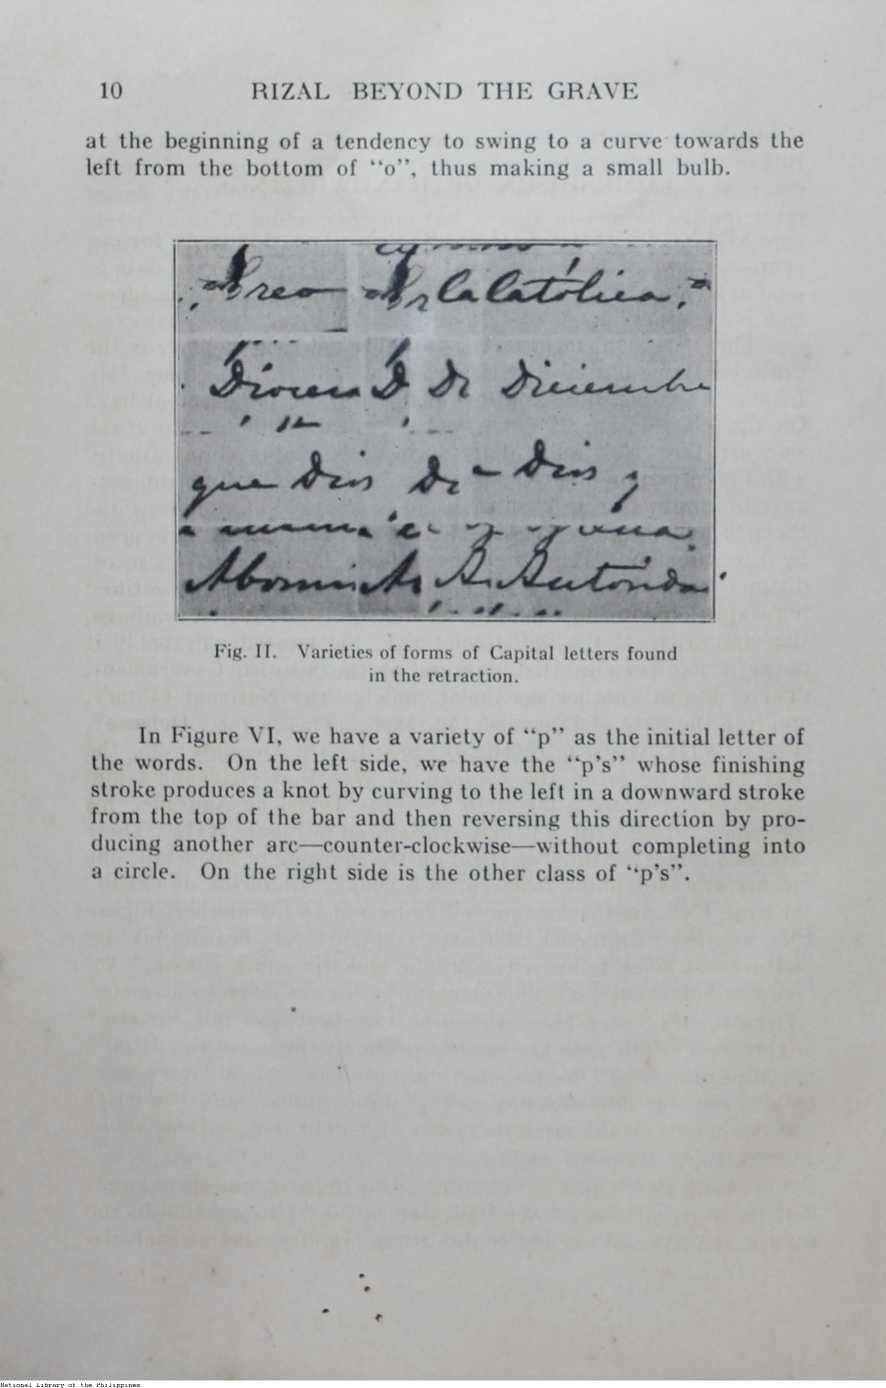 10 RIZAL BEYOND THE GRAVE
at the beginning of a tendency to swing to a curve towards the
left from the bottom of “o”, thus making a small bulb.
Creo la Católica,
Dioces D Di Diciembre
que Dios Di Dios y
Abomin A A Autorida
Fig. II. Varieties of forms of Capital letters found
in the retraction.
In Figure VI, we have a variety of “p” as the initial letter of
the words. On the left side, we have the “p’s” whose finishing
stroke produces a knot by curving to the left in a downward stroke
from the top of the bar and then reversing this direction by pro-
ducing another arc—counter-clockwise—without completing into
a circle. On the right side is the other class of “p’s”.
National Library of the Philippines